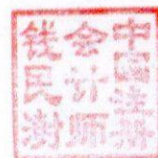 中国注册
会计师
钱民